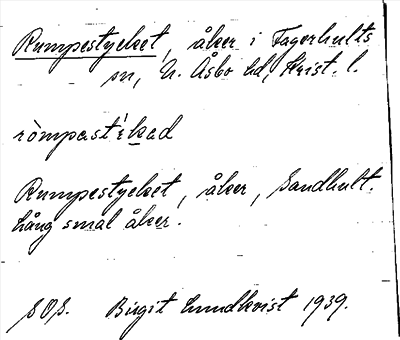 Rumpestycket, åker i Fagerhults
sn, N. Åsbo hd, Krist. l.
ròmpastìkad
Rumpestycket, åker, Sandhult.
Lång smal åker.
SOS. Birgit Lundkvist 1939.